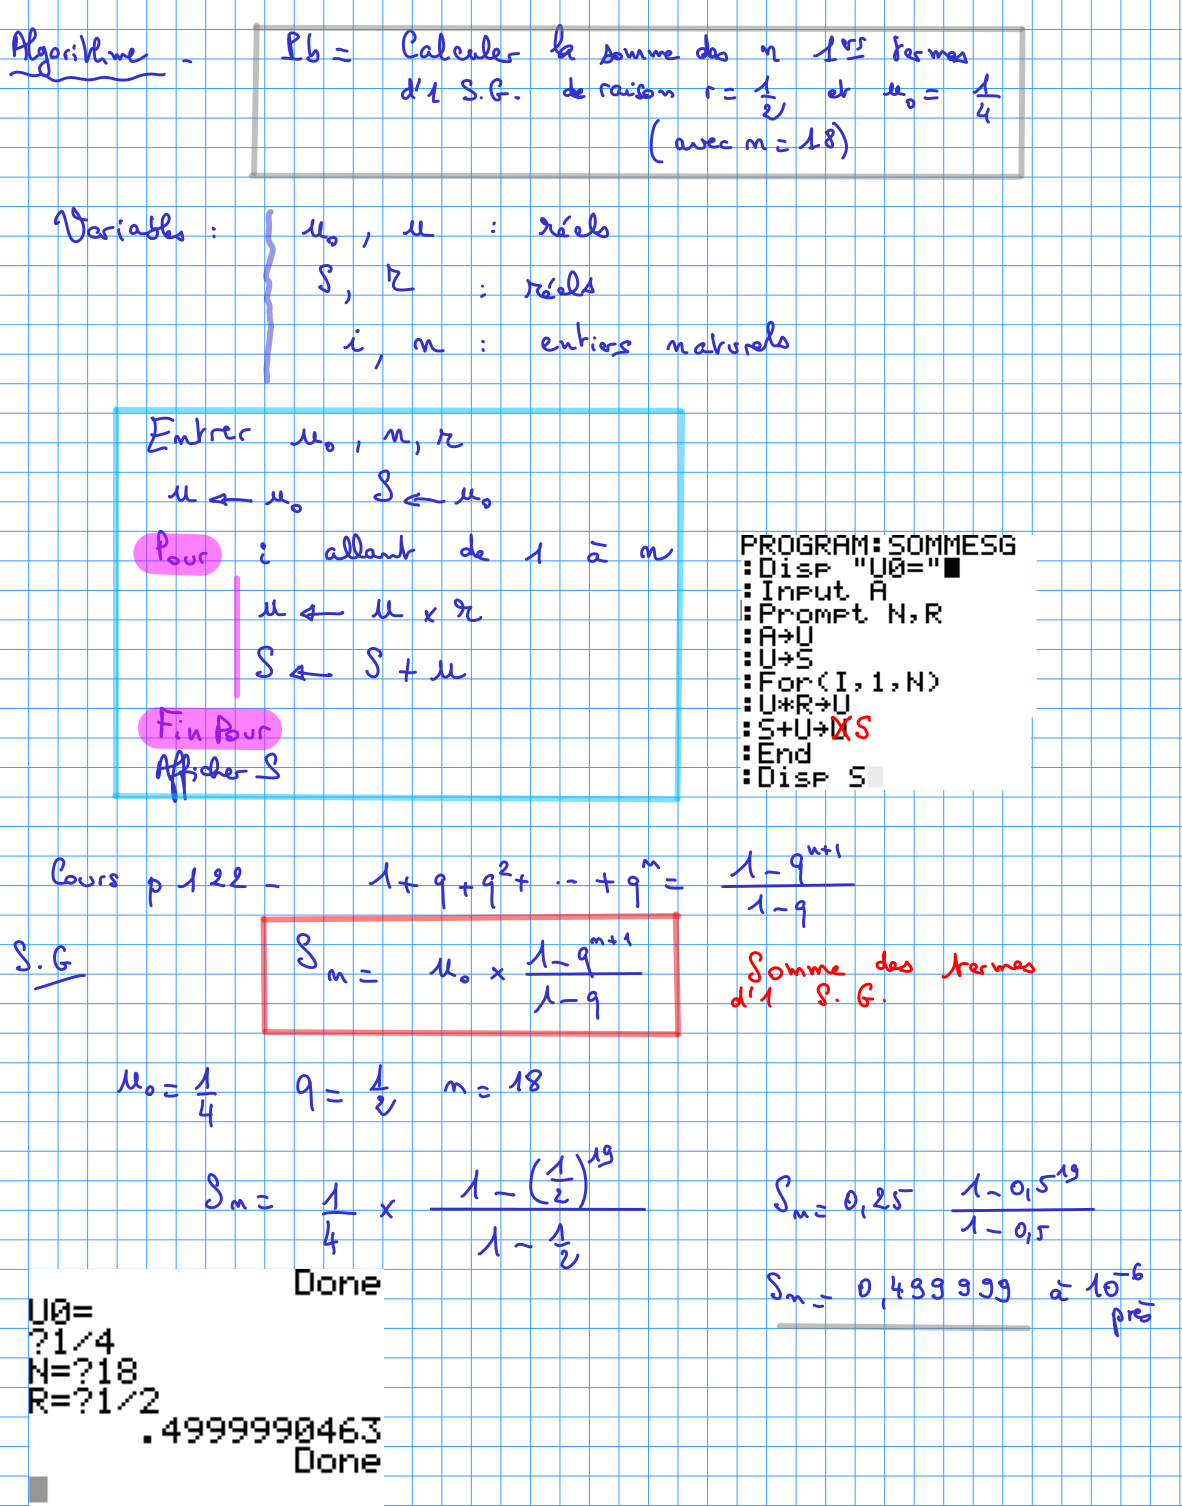 Algorithme - Pb = Calculer la somme des n 1ers termes
d'1 S.G. de raison r = 1/2 et u₀ = 1/4
(avec n = 18)
Variables : u₀, u : réels
S, r : réels
i, n : entiers naturels
Entrer u₀, n, r
u ← u₀ S ← u₀
Pour i allant de 1 à n
u ← u × r
S ← S + u
Fin Pour
Afficher S
PROGRAM:SOMMESG
:Disp "U0="
:Input A
:Prompt N,R
:A→U
:U→S
:For(I,1,N)
:U*R→U
:S+U→U S
:End
:Disp S
Cours p 122 - 1 + q + q² + ... + qⁿ = (1 - qⁿ⁺¹)/(1 - q)
S.G Sn = u₀ × (1 - qⁿ⁺¹)/(1 - q)
Somme des termes
d'1 S. G.
u₀ = 1/4 q = 1/2 n = 18
Sn = 1/4 × (1 - (1/2)¹⁹)/(1 - 1/2)
Sn = 0,25 (1 - 0,5¹⁹)/(1 - 0,5)
Sn = 0,499 999 à 10⁻⁶ près
Done
U0=
?1/4
N=?18
R=?1/2
.4999990463
Done